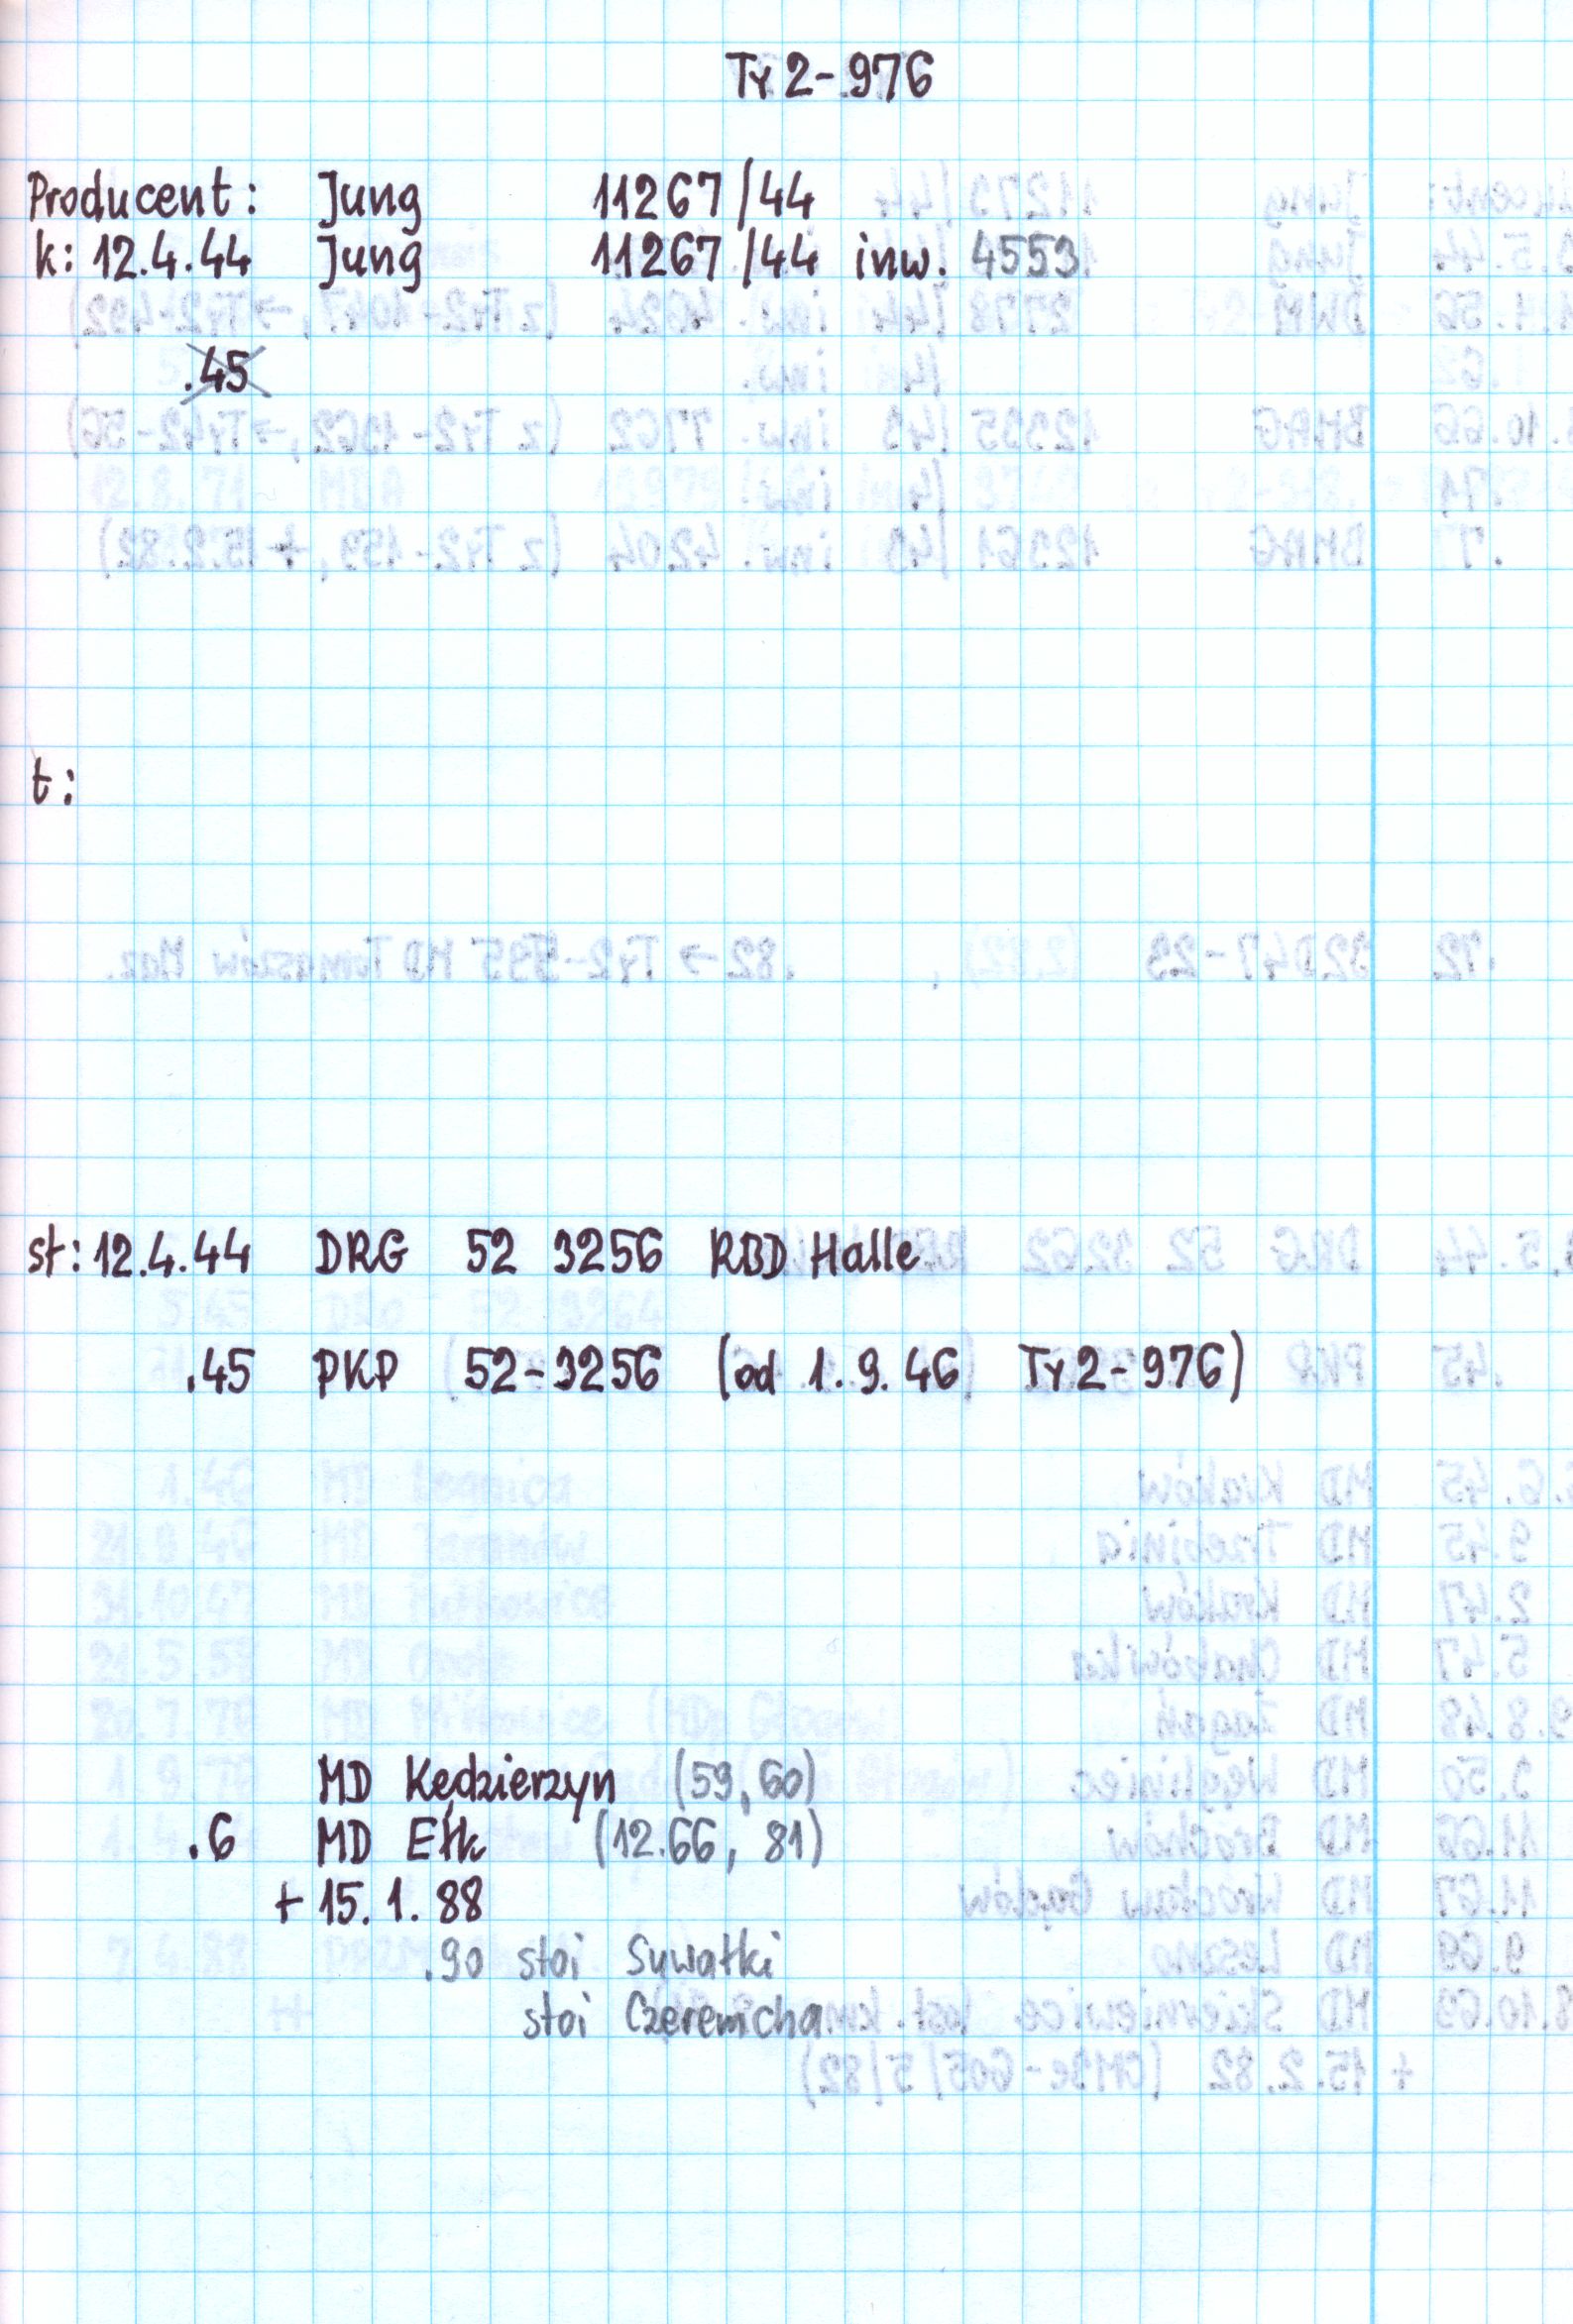 Ty2-976
Producent: Jung 11267/44
k: 12.4.44 Jung 11267/44 inw. 4553
.45
t:
st: 12.4.44 DRG 52 3256 RBD Halle
.45 PKP 52-3256 (od 1.9.46 Ty2-976)
MD Kędzierzyn (59, 60)
.6 MD Ełk (12.66, 81)
+ 15.1.88
.90 stoi Suwałki
stoi Czeremcha